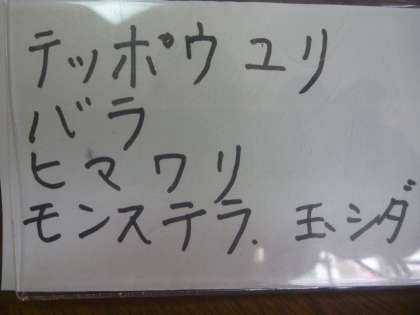 テッポウユリ
バラ
ヒマワリ
モンステラ、玉シダ